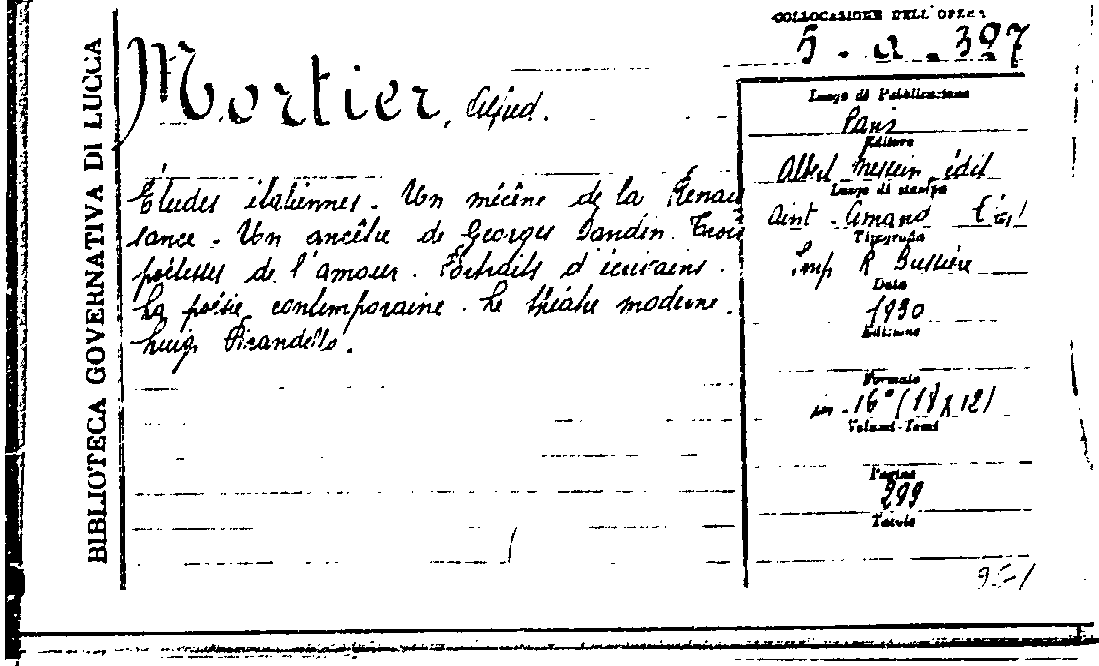 BIBLIOTECA GOVERNATIVA DI LUCCA
COLLOCAZIONE DELL'OPERA
5 - a - 327
Mortier, Alfred.
Études italiennes. Un mécène de la Renais
sance. Un ancêtre de Georges Dandin. Trois
poétesses de l'amour. Portraits d'écrivains.
La poésie contemporaine. Le théâtre moderne.
Luigi Pirandello.
Luogo di Pubblicazione
Paris
Editore
Albert Messein édit
Luogo di stampa
aint-Amand
Tipografo
Imp R Bussière
Data
1930
Edizione
Formato
in-16° (18x12)
Volumi-Tomi
Pagine
299
Tavole